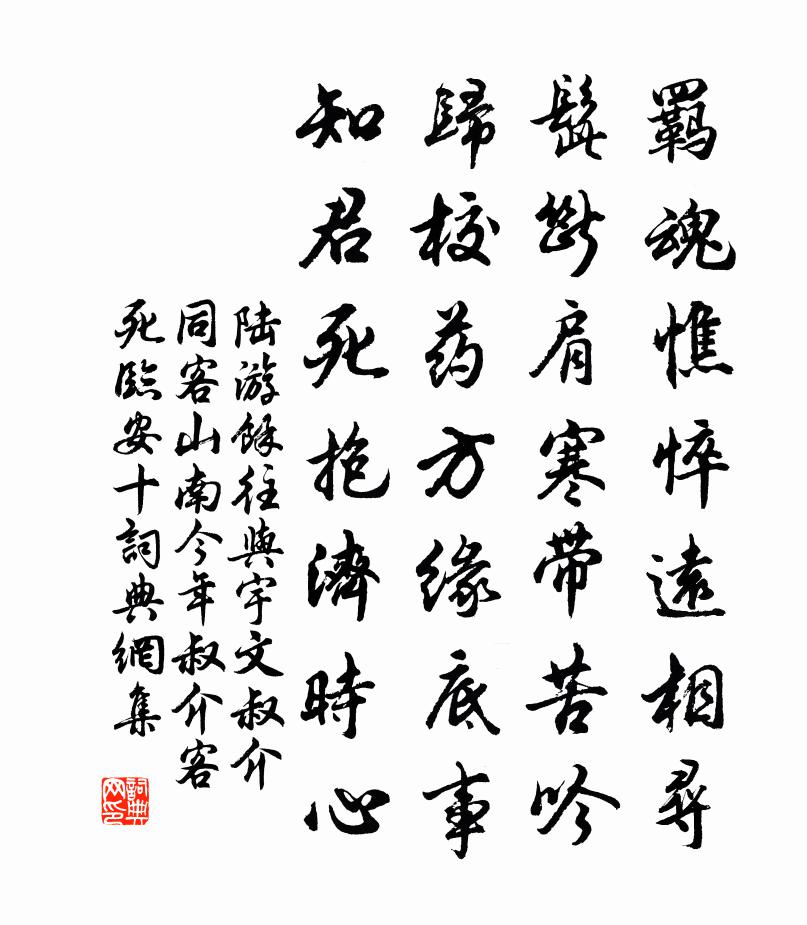 羈魂憔悴遠相尋
髭斷肩寒帶苦吟
歸校药方緣底事
知君死抱濟時心
陆游餘往與宇文叔介
同客山南今年叔介客
死臨安十詞典網集
詞典网印